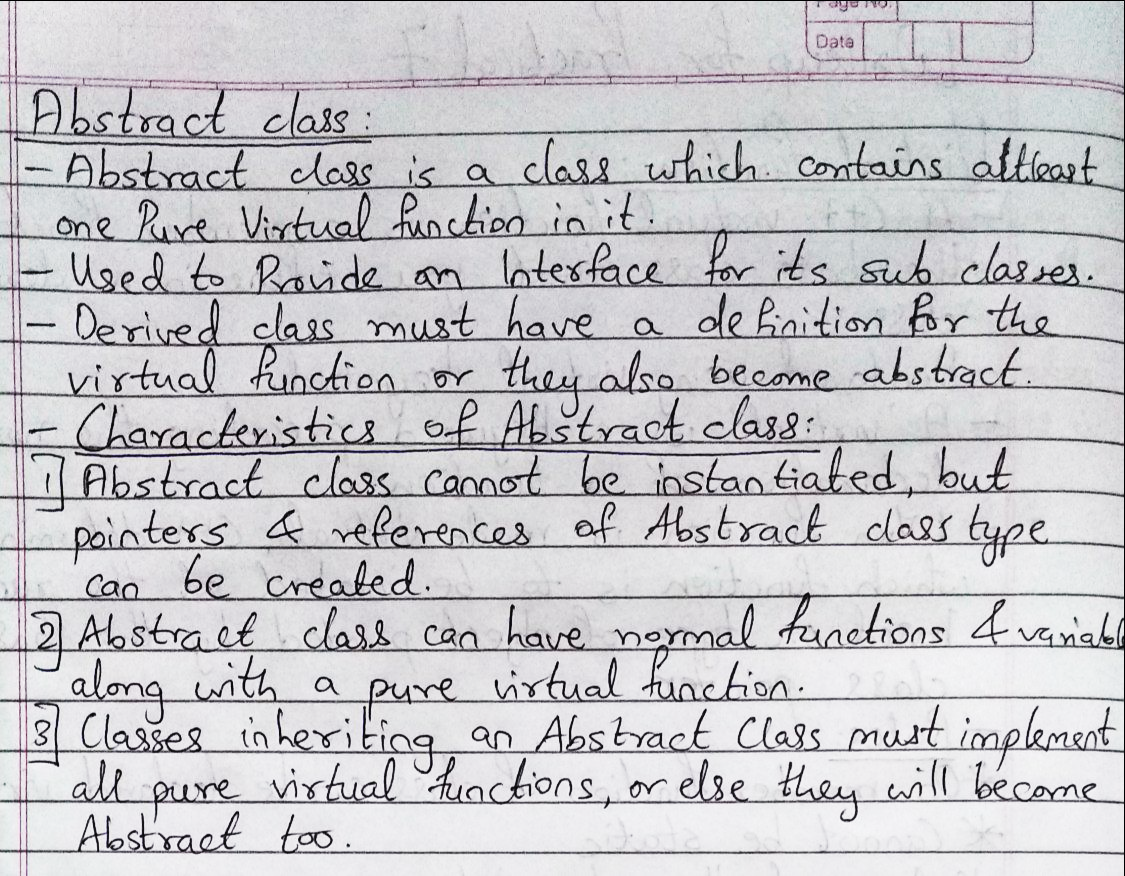 Page No.
Date
Abstract class:
- Abstract class is a class which contains altleast
one Pure Virtual function in it.
- Used to Provide an Interface for its sub classes.
- Derived class must have a definition for the
virtual function or they also become abstract.
- Characteristics of Abstract class:
1] Abstract class cannot be instantiated, but
pointers & references of Abstract class type
can be created.
2] Abstract class can have normal functions & variabl
along with a pure virtual function.
3] Classes inheriting an Abstract Class must implement
all pure virtual functions, or else they will become
Abstract too.